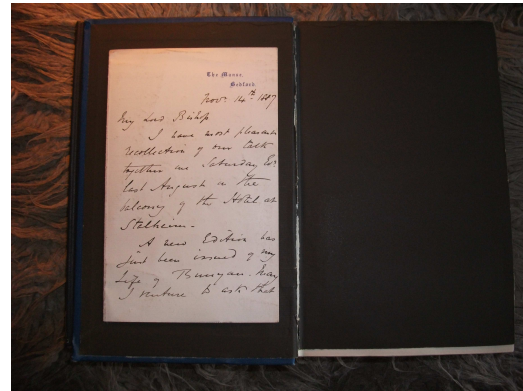 The Manse,
Bedford.
Nov. 14th 1887
My Lord Bishop
I have most pleasant
recollection of our talk
together one Saturday Ev.
last August in the
balcony of the Hotel at
Stalheim.
A new Edition has
just been issued of my
Life of Bunyan. May
I venture to ask that